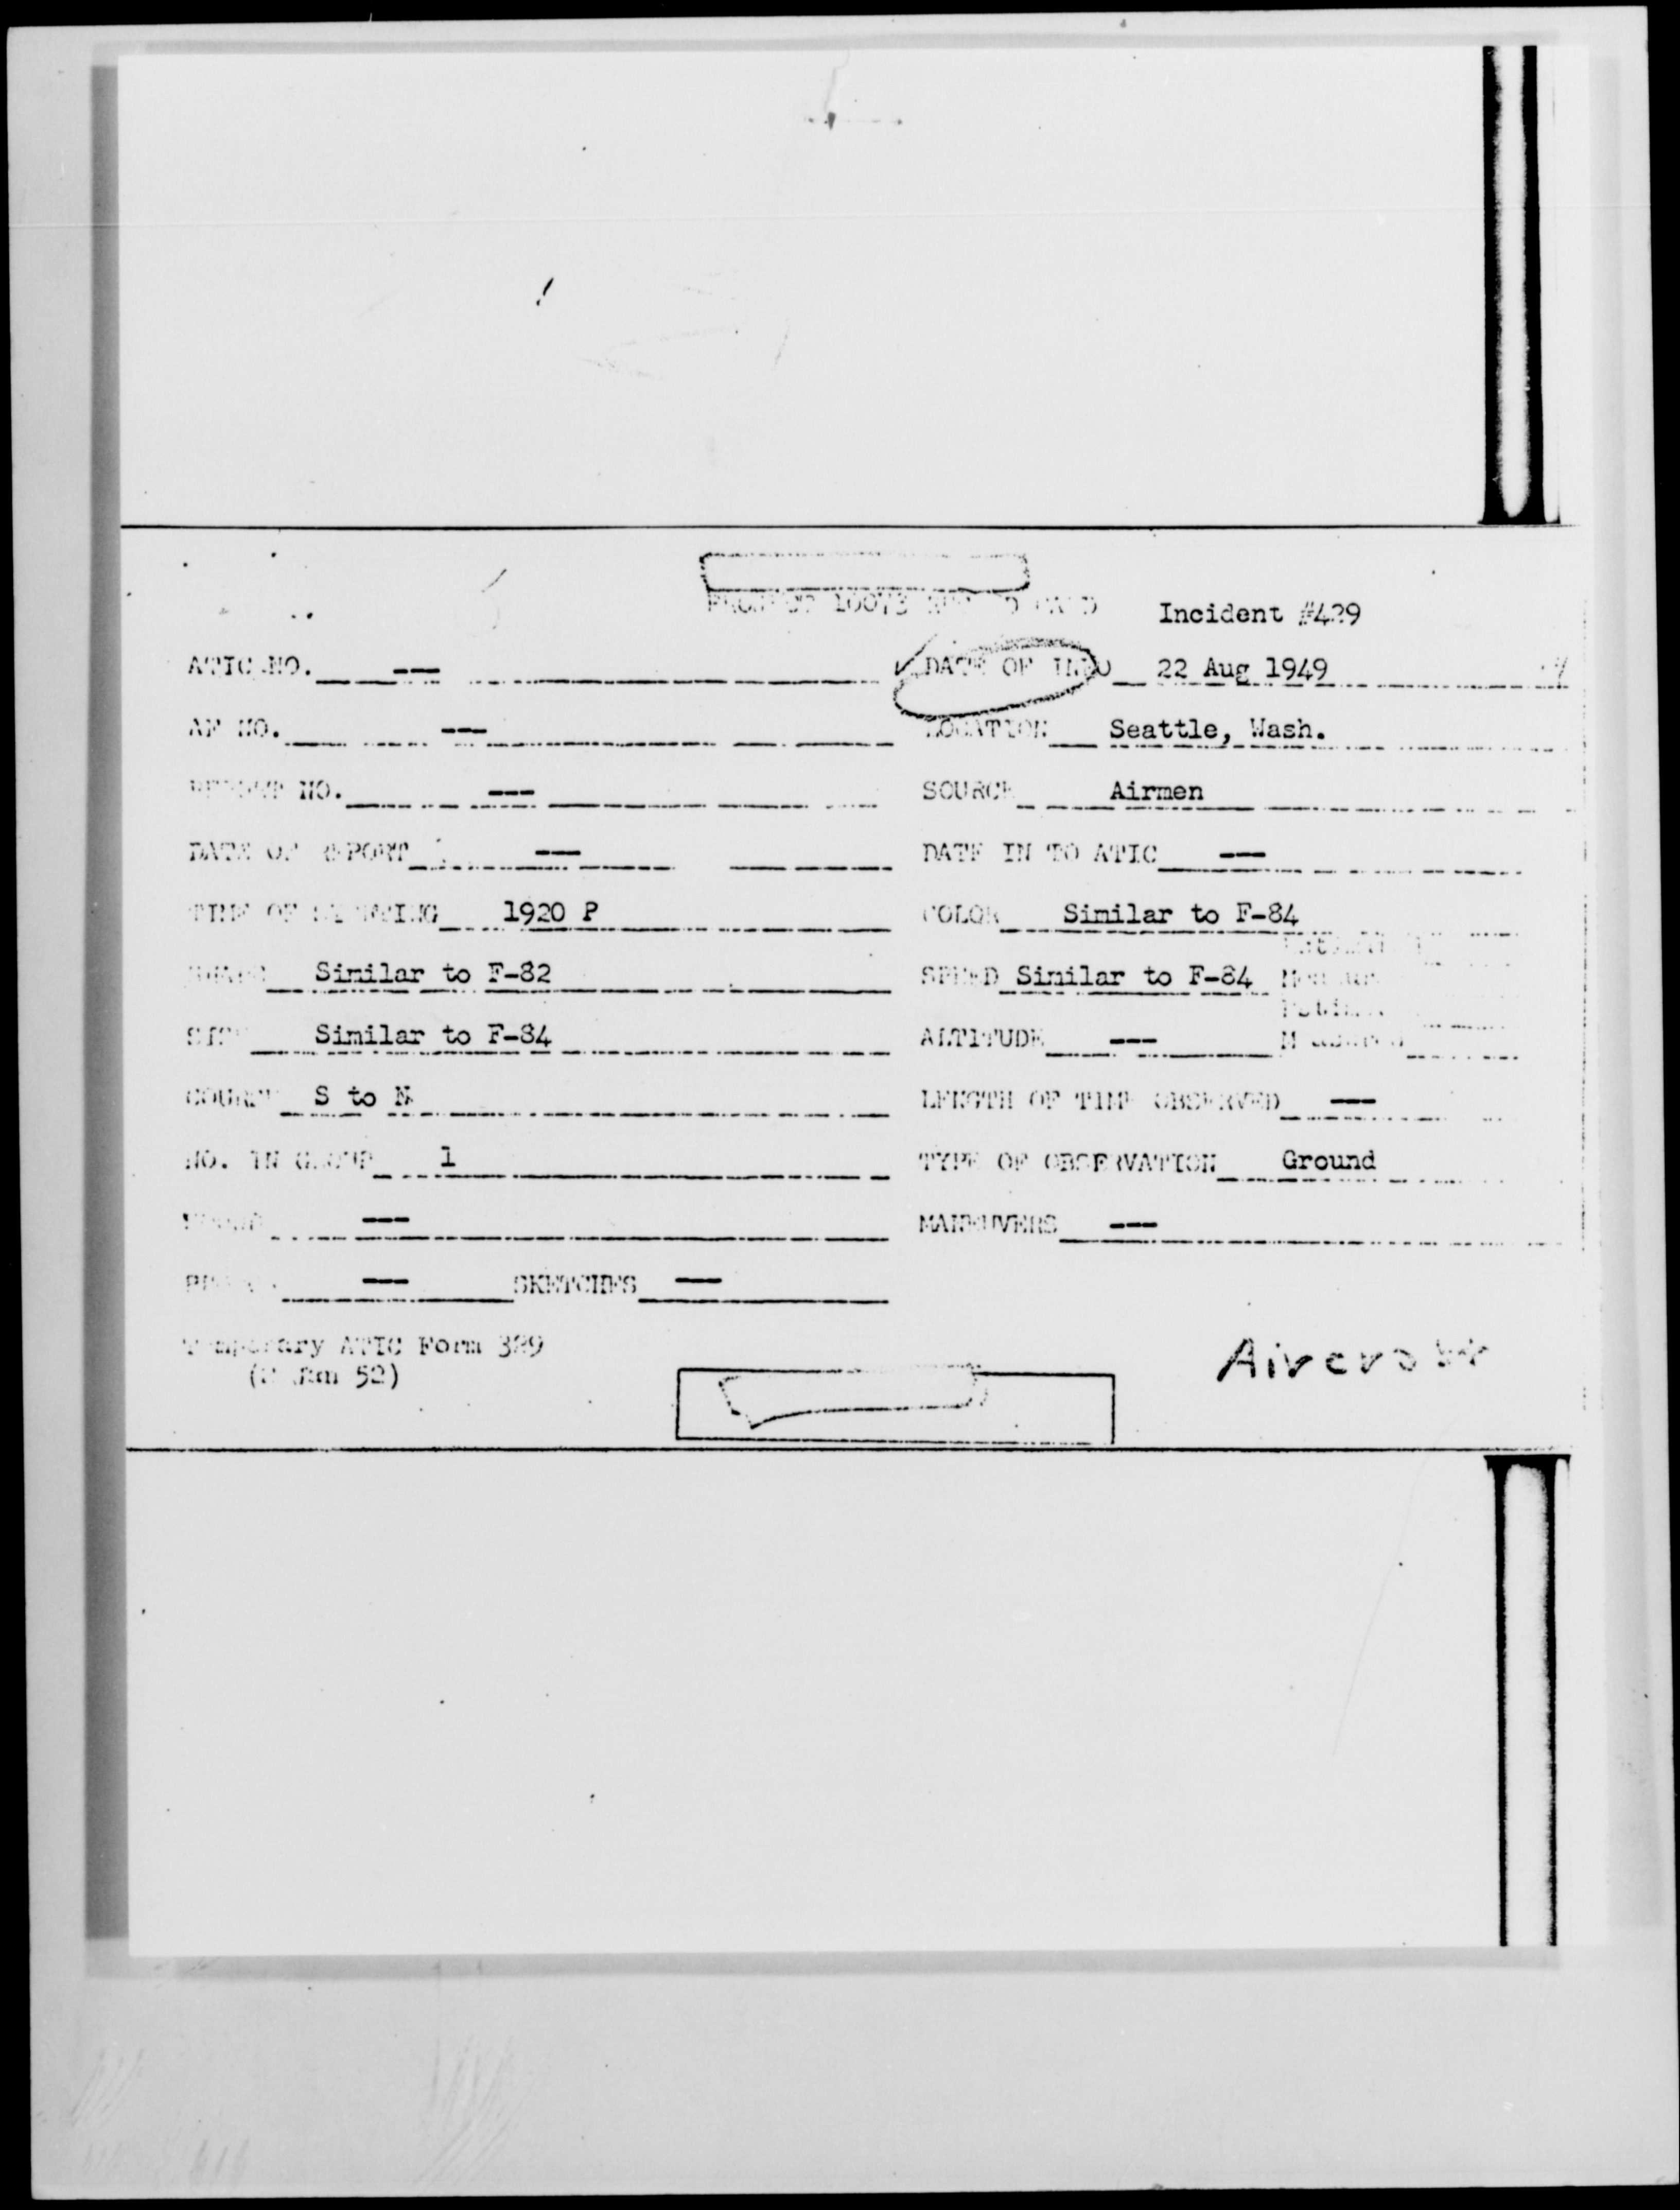 PROJECT 10073 RECORD CARD Incident #429
ATIC NO. --- DATE OF INFO 22 Aug 1949
AF NO. --- LOCATION Seattle, Wash.
REPORT NO. --- SOURCE Airmen
DATE OF REPORT --- DATE IN TO ATIC ---
TIME OF SIGHTING 1920 P COLOR Similar to F-84
SHAPE Similar to F-82 SPEED Similar to F-84
SIZE Similar to F-84 ALTITUDE ---
COURSE S to N LENGTH OF TIME OBSERVED ---
NO. IN GROUP 1 TYPE OF OBSERVATION Ground
SOUND --- MANEUVERS ---
--- SKETCHES ---
Temporary ATIC Form 329
52)
Aircraft